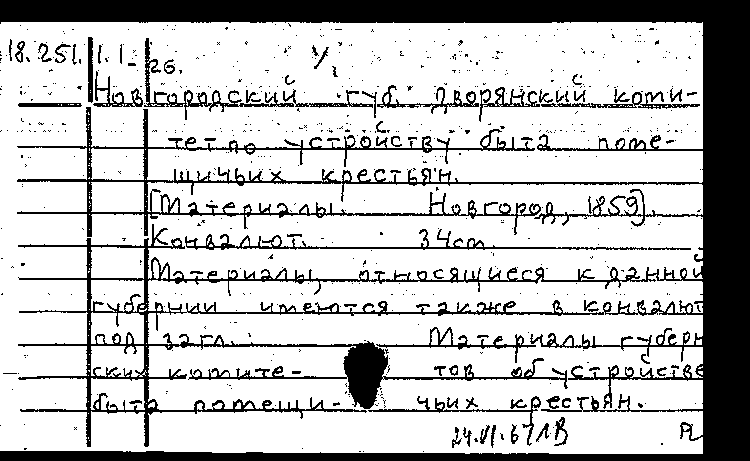 18.251. 1.1-26. У.
Новгородский губ. дворянский коми-
тет по устройству быта поме-
щичьих крестьян.
[Материалы. Новгород, 1859].
Конвалют. 34cm.
Материалы, относящиеся к данной
губернии имеются также в конвалют
под загл.: Материалы губерн
ских комите- тов об устройстве
быта помещи- чьих крестьян.
24.VI.67